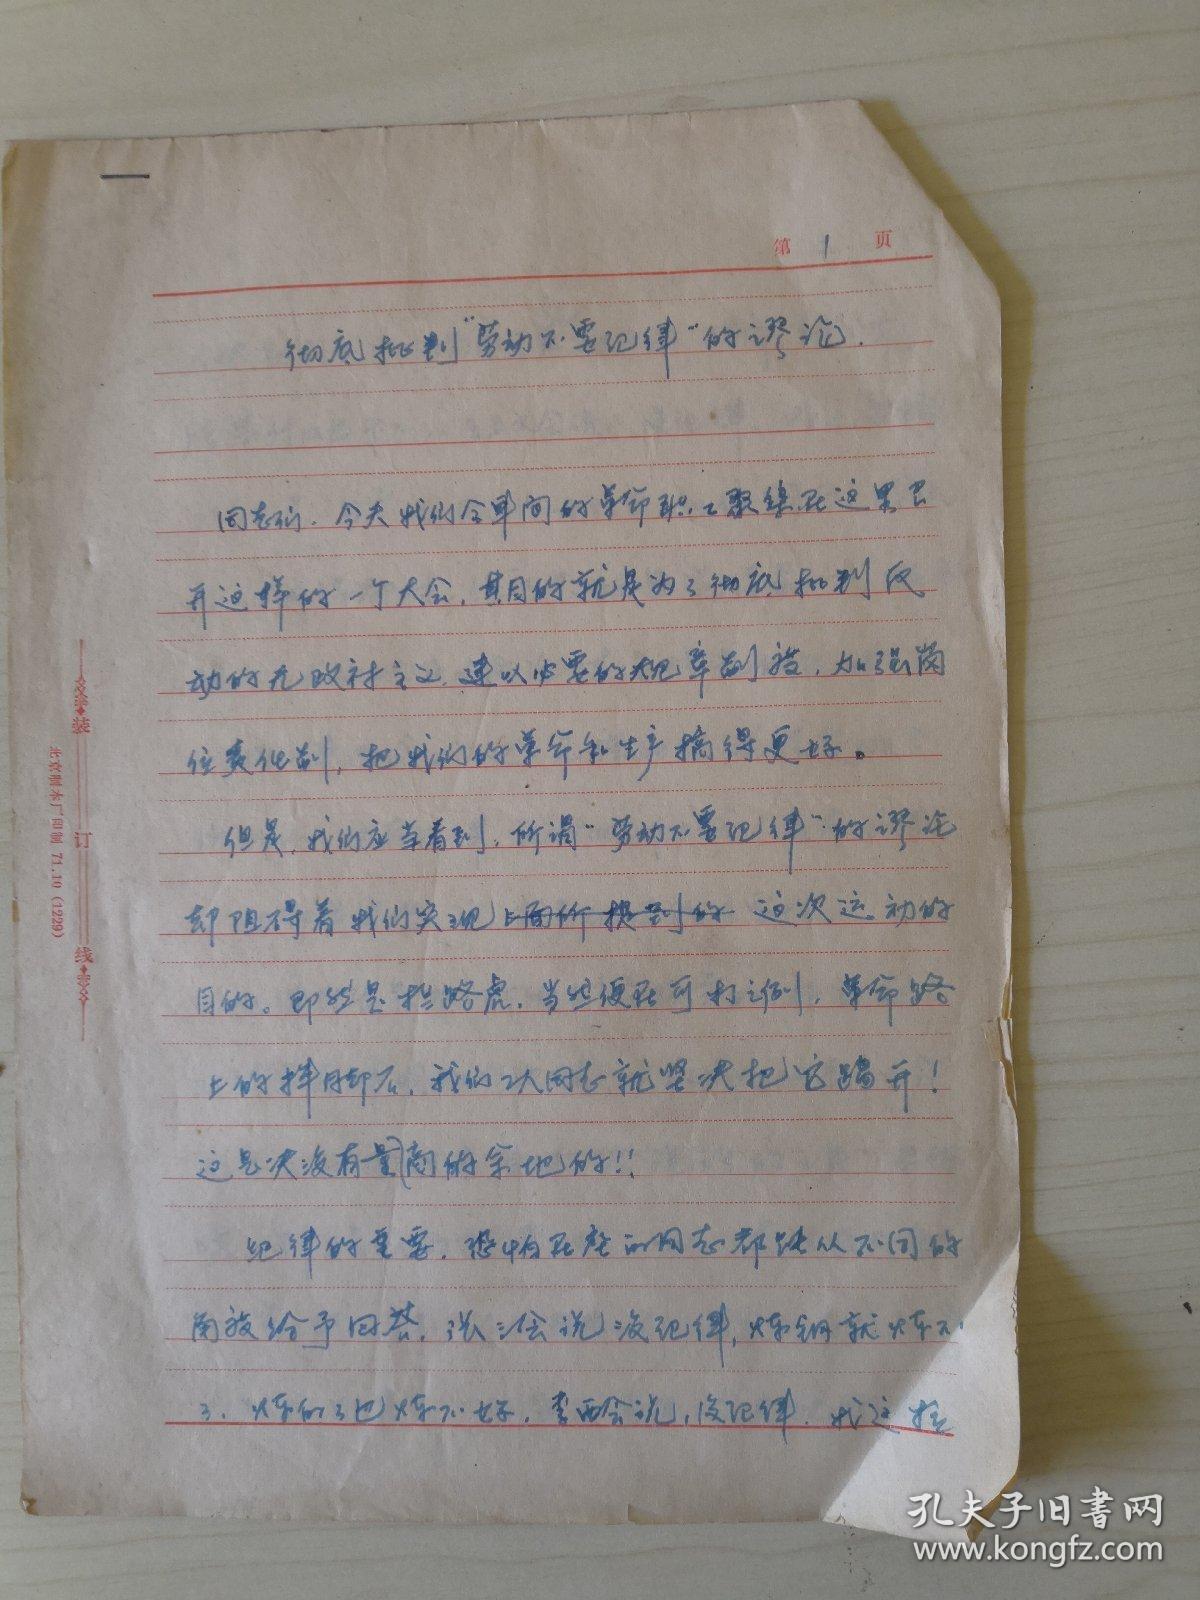 第 1 页
彻底批判"劳动不要纪律"的谬论.
同志们. 今天我们全车间的革命职工聚集在这里召
开这样的一个大会. 其目的就是为了彻底批判反
动的无政府主义. 建以必要的规章制度. 加强岗
位责任制. 把我们的革命和生产搞得更好。
但是. 我们应当看到. 所谓"劳动不要纪律"的谬论
却阻碍着我们实现上面所提到的这次运动的
目的。即然是拦路虎. 当然便在可打之例. 革命路
上的拌脚石. 我们工人同志就坚决把它踢开!
这是决没有量商的余地的!!
纪律的重要. 恐怕在座的同志都能从不同的
角度给予回答. 张三会说没纪律, 炼钢就炼不
了. 炼的了也炼不好. 李四会说, 没纪律. 我这
装 订 线
北京制本厂印制 71.10 (1229)
孔夫子旧书网
www.kongfz.com